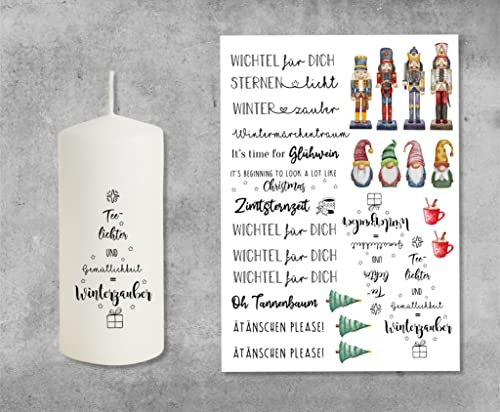 Tee-
lichter
UND
Gemütlichkeit
=
Winterzauber
WICHTEL für DICH
STERNENlicht
WINTERzauber
Wintermärchentraum
It's time for Glühwein
IT'S BEGINNING TO LOOK A LOT LIKE
Christmas
Zimtsternzeit
WICHTEL für DICH
WICHTEL für DICH
WICHTEL für DICH
Oh Tannenbaum
ÄTÄNSCHEN PLEASE!
ÄTÄNSCHEN PLEASE!
Tee-
lichter
UND
Gemütlichkeit
=
Winterzauber
Tee-
lichter
UND
Gemütlichkeit
=
Winterzauber